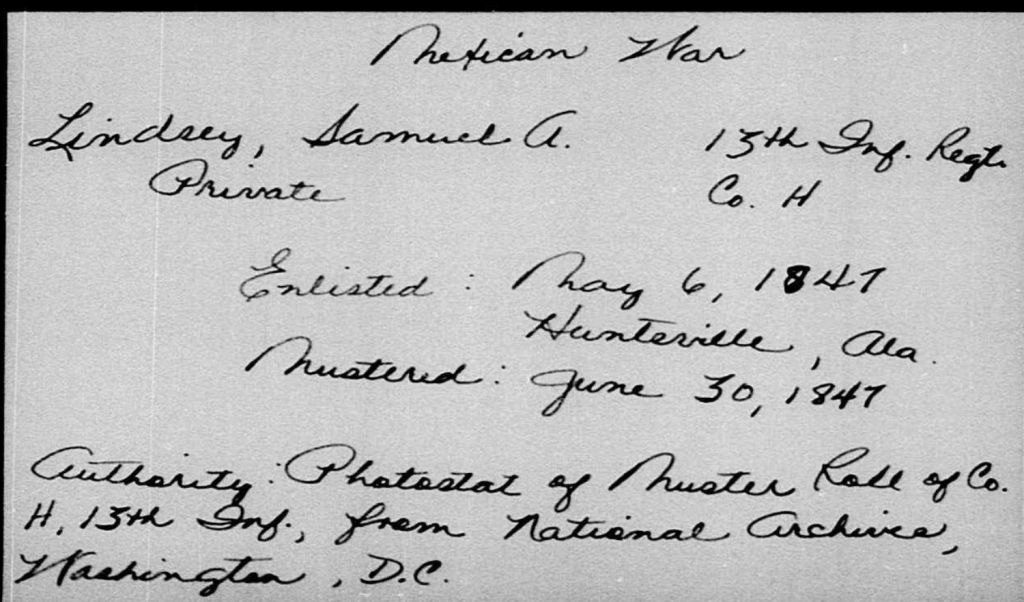 Mexican War
Lindsey, Samuel A. 13th Inf. Regt.
Private Co. H
Enlisted: May 6, 1847
Huntsville, Ala.
Mustered: June 30, 1847
Authority: Photostat of Muster Roll of Co.
H, 13th Inf., from National Archives,
Washington, D.C.